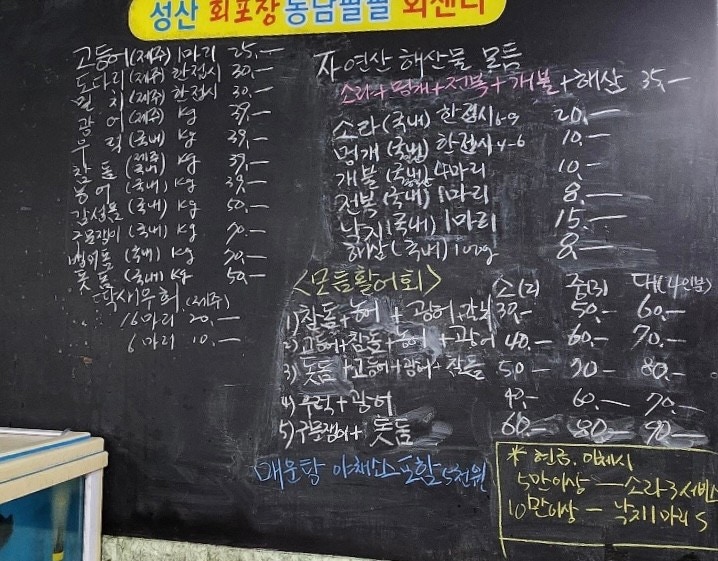 성산 회포장 동남팔팔 회센터
고등어(제주) 1마리 25,—
도다리(제주) 한접시 30,—
멸치(제주) 한접시 30,—
광어(제주) kg 39,—
우럭(국내) kg 39,—
참돔(제주 국내) kg 39,—
농어(국내) kg 39,—
감성돔(국내) kg 50,—
구문쟁이(국내) kg 70,—
벵에돔(국내) kg 70,—
돗돔(국내) kg 50,—
딱새우회 (제주)
16마리 20,—
6마리 10,—
자연산 해산물 모듬
소라+멍게+전복+개불+해삼 35,—
소라(국내) 한접시 20,—
멍게(국내) 한접시 4~6 10,—
개불(국내) 4마리 10,—
전복(국내) 1마리 8,—
낙지(국내) 1마리 15,—
해삼(국내) 100g 8,—
<모듬활어회> 소(2) 중(3) 대(4인분)
1) 참돔+농어+광어+ 39,— 50,— 60,—
2) 고등어+참돔+농어+광어 40,— 60,— 70,—
3) 돗돔+고등어+광어+참돔 50— 70— 80,—
4) 우럭+광어 40,— 60,— 70,—
5) 구문쟁이+돗돔 60— 80— 90—
매운탕 야채소스포함 5천원
* 현금, 이체시
5만이상 — 소라3 서비스
10만이상 — 낙지1마리 S